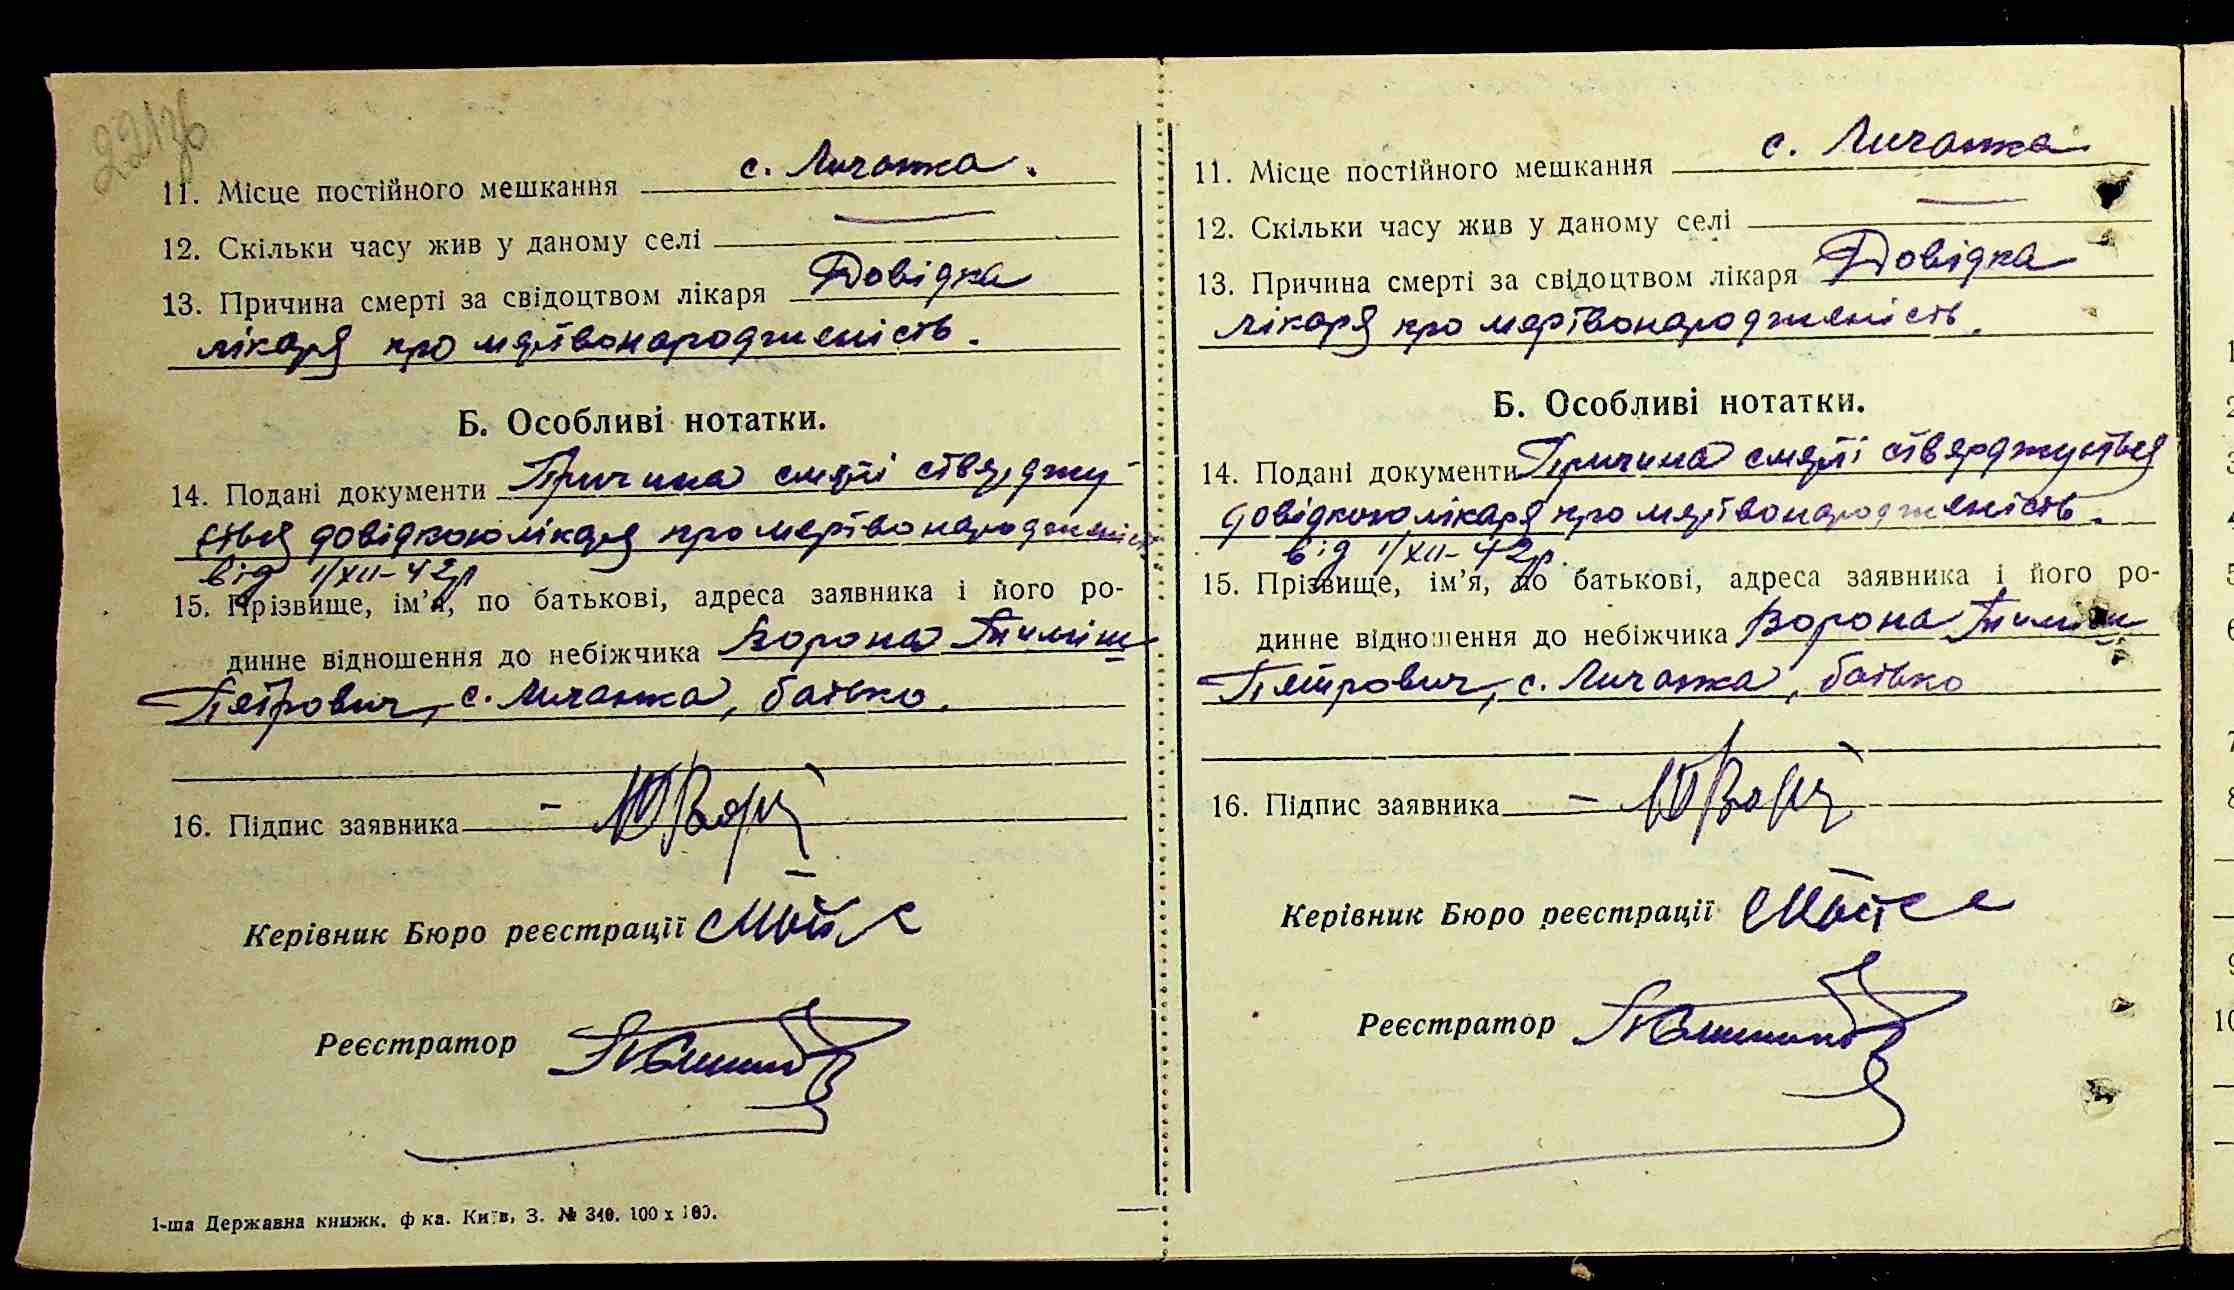 221зв
11. Місце постійного мешкання с. Личанка.
12. Скільки часу жив у даному селі —
13. Причина смерті за свідоцтвом лікаря Довідка
лікаря про мертвонародженість.
Б. Особливі нотатки.
14. Подані документи Причина смерті стверджу-
ється довідкою лікаря про мертвонародженість
від 1/XII-42р
15. Прізвище, ім'я, по батькові, адреса заявника і його ро-
динне відношення до небіжчика Ворона Тиміш
Петрович, с. Личанка, батько.
16. Підпис заявника
Керівник Бюро реєстрації
Реєстратор
1-ша Державна книжк. ф ка. Київ, З. № 340. 100 х 100.
11. Місце постійного мешкання с. Личанка
12. Скільки часу жив у даному селі —
13. Причина смерті за свідоцтвом лікаря Довідка
лікаря про мертвонародженість.
Б. Особливі нотатки.
14. Подані документи Причина смерті стверджується
довідкою лікаря про мертвонародженість.
від 1/XII-42р.
15. Прізвище, ім'я, по батькові, адреса заявника і його ро-
динне відношення до небіжчика Ворона Тиміш
Петрович, с. Личанка, батько
16. Підпис заявника
Керівник Бюро реєстрації
Реєстратор